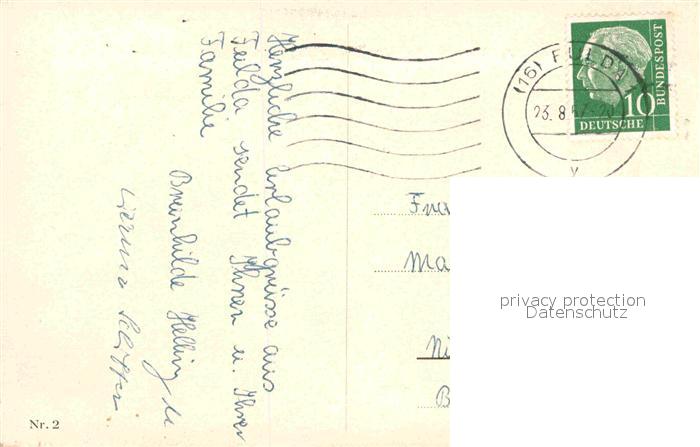 Herzliche Urlaubsgrüsse aus
Fulda sendet Ihnen u. Ihrer
Familie
Brunhilde Helling u
(16) FULDA
23. 8. 57
y
10
DEUTSCHE
BUNDESPOST
Ma
Ni
B
privacy protection
Datenschutz
Nr. 2